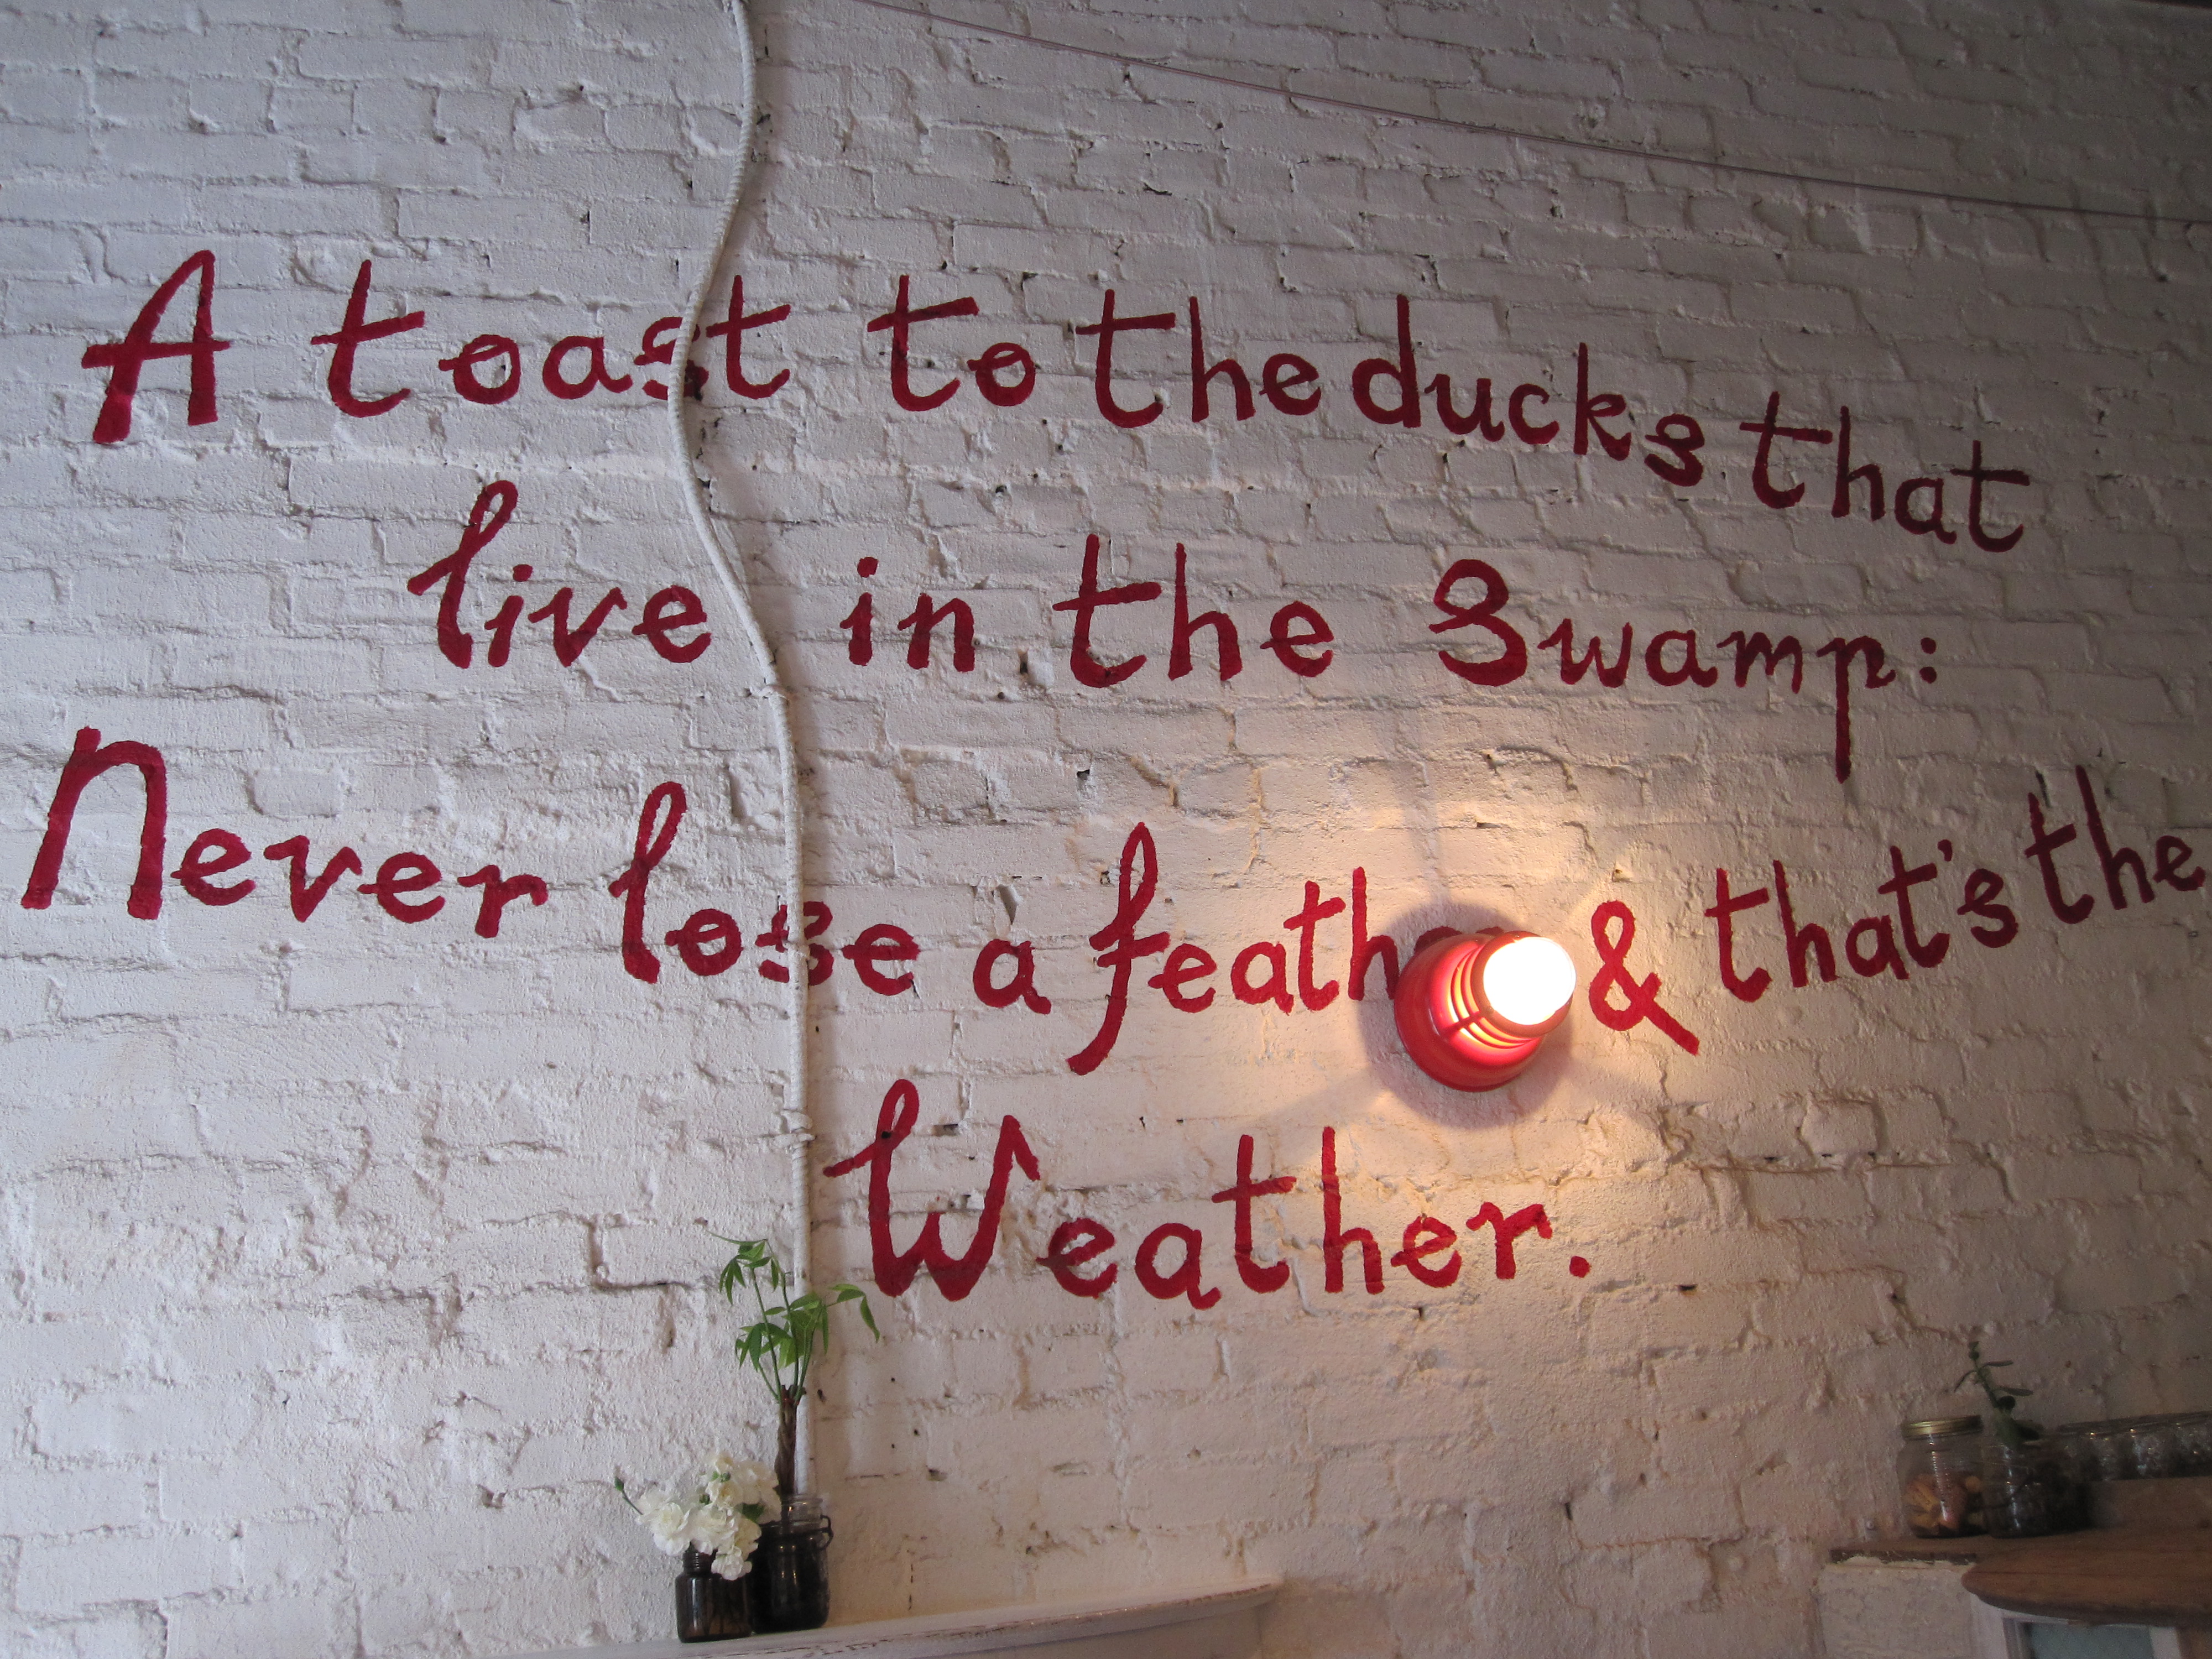 A toast to the ducks that
live in the Swamp:
Never lose a feather & that's the
Weather.